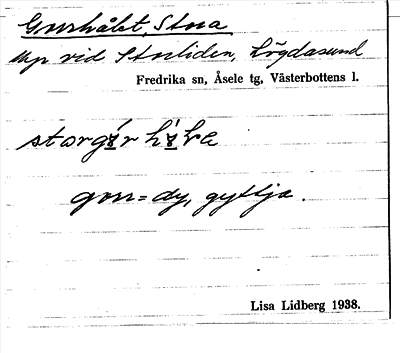 Gurrhålet, Stora
Myr vid Storliden, Lögdasund
Fredrika sn, Åsele tg, Västerbottens l.
gorr = dy, gyttja.
Lisa Lidberg 1938.